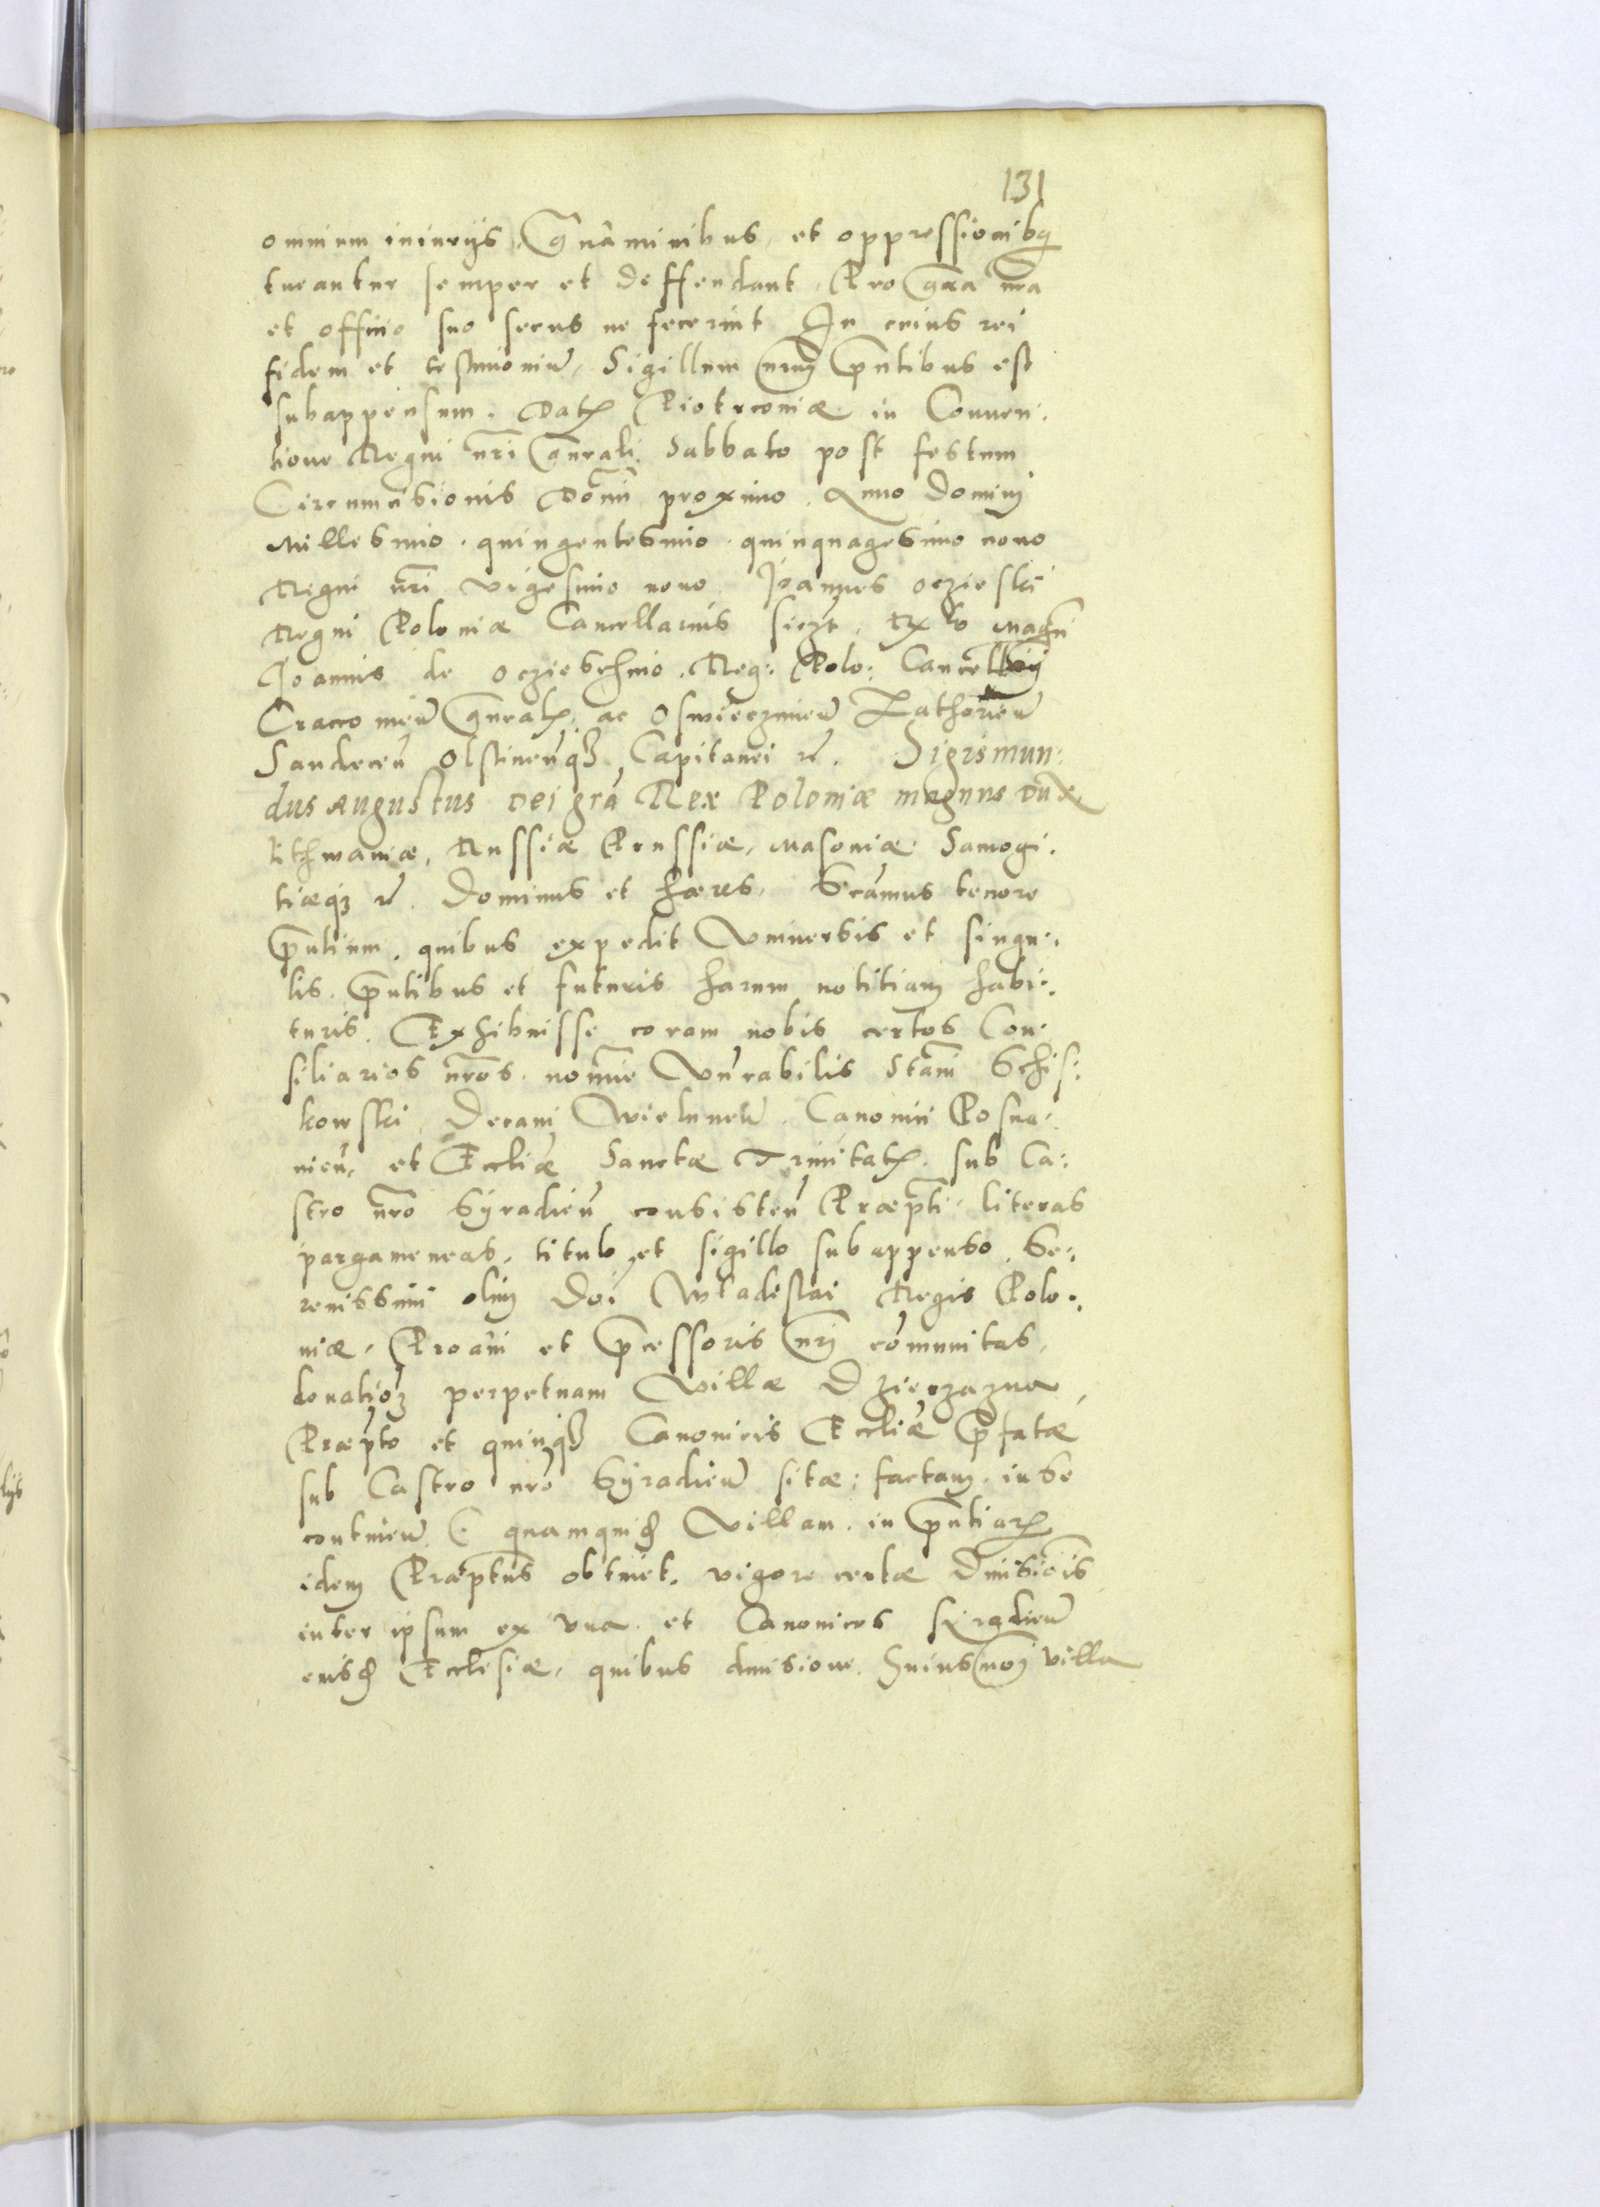 131
omnium iniurijs, Gnāminibus, et oppressionibq
tueantur semper et deffendant, Pro gr̄a nr̄a
et officio suo secus ne fecerint In cuius rei
fidem et testimoniū, Sigillum nr̄m p̄ntibus est
subappensum. Dat Piotrconiæ in Conuen:
tione Regni nr̄i gn̄rali. Sabbato post festum
Circumcisionis Domī proximo. Anno Dominj
Millesimo. quingentesimo. quinquagesimo nono
Regni nr̄i vigesimo nono. Joannes oczieski
Regni Poloniæ Cancellarius Magn̄
Joannis de oczieschino. Reg: Polo: Cancellarij
Cracouieñ gn̄ral: ac Oswieczimeñ Zathorieñ
Sandeceñ Olstineñqз Capitanei rc. Sigismun:
dus Augustus Dei grã Rex Poloniæ magnus Dux
Lithwaniæ, Russiæ Prussiæ, Masouiæ Samogi:
tiæqз rc. Dominus et hæres, tenore
p̄ntium. quibus expedit Vniuersis et singu:
lis. p̄ntibus et futuris harum notitiam habi:
turis. Exhibuisse coram nobis certos Con:
siliarios nr̄os. nomīe Vn̄rabilis Stanī Schis:
kowski, Decani Wieluneñ. Canonici Posna:
nieñ, et Eccliæ Sanctæ Trinitat. sub Ca:
stro nr̄o Syradieñ consisteñ Præpti. literas
pargameneas, titulo, et sigillo subappenso, Se:
renissimi olim Doi Wladislai Regis Polo:
niæ, Proaui et p̄cessoris nr̄j cōmunitas,
donationз perpetuam Villæ Dzierzazna,
Præpto et quinqз Canonicis Eccliæ p̄fatæ
sub Castro nr̄o Syradieñ sitæ: factam. in se
contineñ (: quamquid Villam. in p̄ntiar
idem Præptus obtinet. vigore certæ Diuisiois
inter ipsum ex vna. et Canonicos Siradieñ
eiusd Ecclesiæ, quibus diuisione, huiusmoi villa